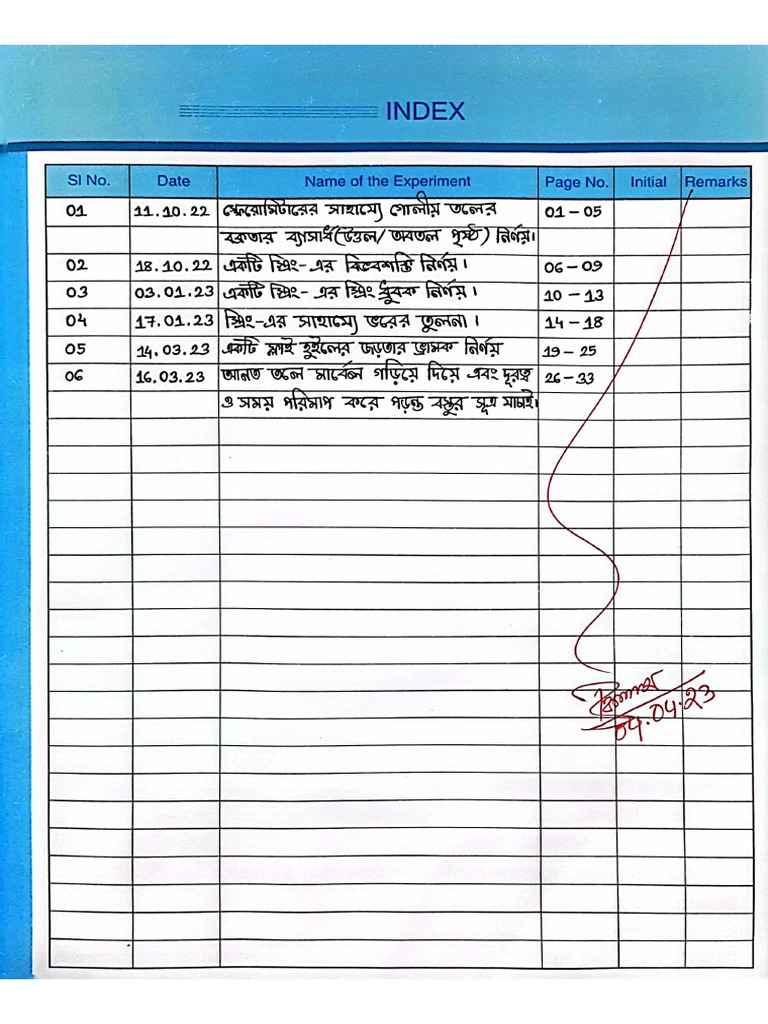 INDEX
Sl No. Date Name of the Experiment Page No. Initial Remarks
01 11.10.22 স্ফেরোমিটারের সাহায্যে গোলীয় তলের 01-05
বক্রতার ব্যাসার্ধ(উত্তল/অবতল পৃষ্ঠ) নির্ণয়।
02 18.10.22 একটি স্প্রিং-এর বিভবশক্তি নির্ণয়। 06-09
03 03.01.23 একটি স্প্রিং-এর স্প্রিং ধ্রুবক নির্ণয়। 10-13
04 17.01.23 স্প্রিং-এর সাহায্যে ভরের তুলনা। 14-18
05 14.03.23 একটি ফ্লাই হুইলের জড়তার ভ্রামক নির্ণয় 19-25
06 16.03.23 আনত তলে মার্বেল গড়িয়ে দিয়ে এবং দূরত্ব 26-33
ও সময় পরিমাপ করে পড়ন্ত বস্তুর সূত্র যাচাই।
04.04.23